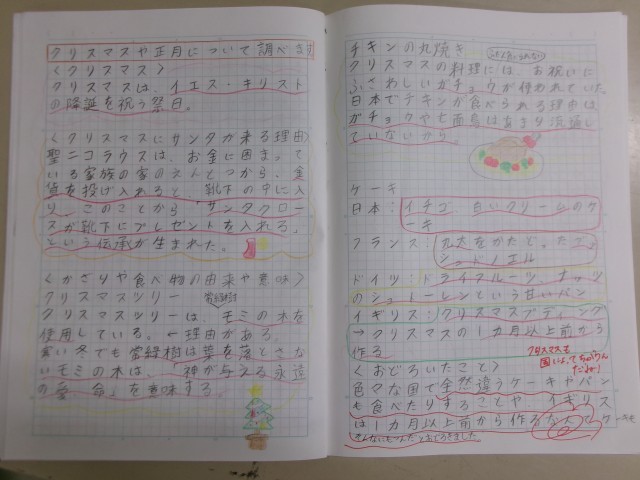 クリスマスや正月について調べます
〈クリスマス〉
クリスマスは、イエス・キリスト
の降誕を祝う祭日。
〈クリスマスにサンタが来る理由〉
聖ニコラウスは、お金に困ってい
る家族の家のえんとつから、金
貨を投げ入れると、靴下の中に入
り、このことから「サンタクロー
スが靴下にプレゼントを入れる」
という伝承が生まれた。
〈かざりや食べ物の由来や意味〉
クリスマスツリー
常緑樹
クリスマスツリーは、モミの木を
使用している。←理由がある。
寒い冬でも常緑樹は葉を落とさな
いモミの木は、「神が与える永遠
の命」を意味する。
チキンの丸焼き
クリスマスの料理には、お祝いに
ふさわしいガチョウが使われていた。
日本でチキンが食べられる理由は
ガチョウや七面鳥はあまり流通し
ていないから。
ケーキ
日本:イチゴ、白いクリームのケ
ーキ
フランス:丸太をかたどったブッ
シュドノエル
ドイツ:ドライフルーツ、ナッツ
のシュトーレンという甘いパン
イギリス:クリスマスプディング
→クリスマスの1カ月以上前から
作る
クリスマスも
国によってちがうん
だね!
〈おどろいたこと〉
色々な国で全然違うケーキやパン
を食べたりすることや、イギリス
は1カ月以上前から作るなんてケーキも
そんなにもつんだとおどろきました。